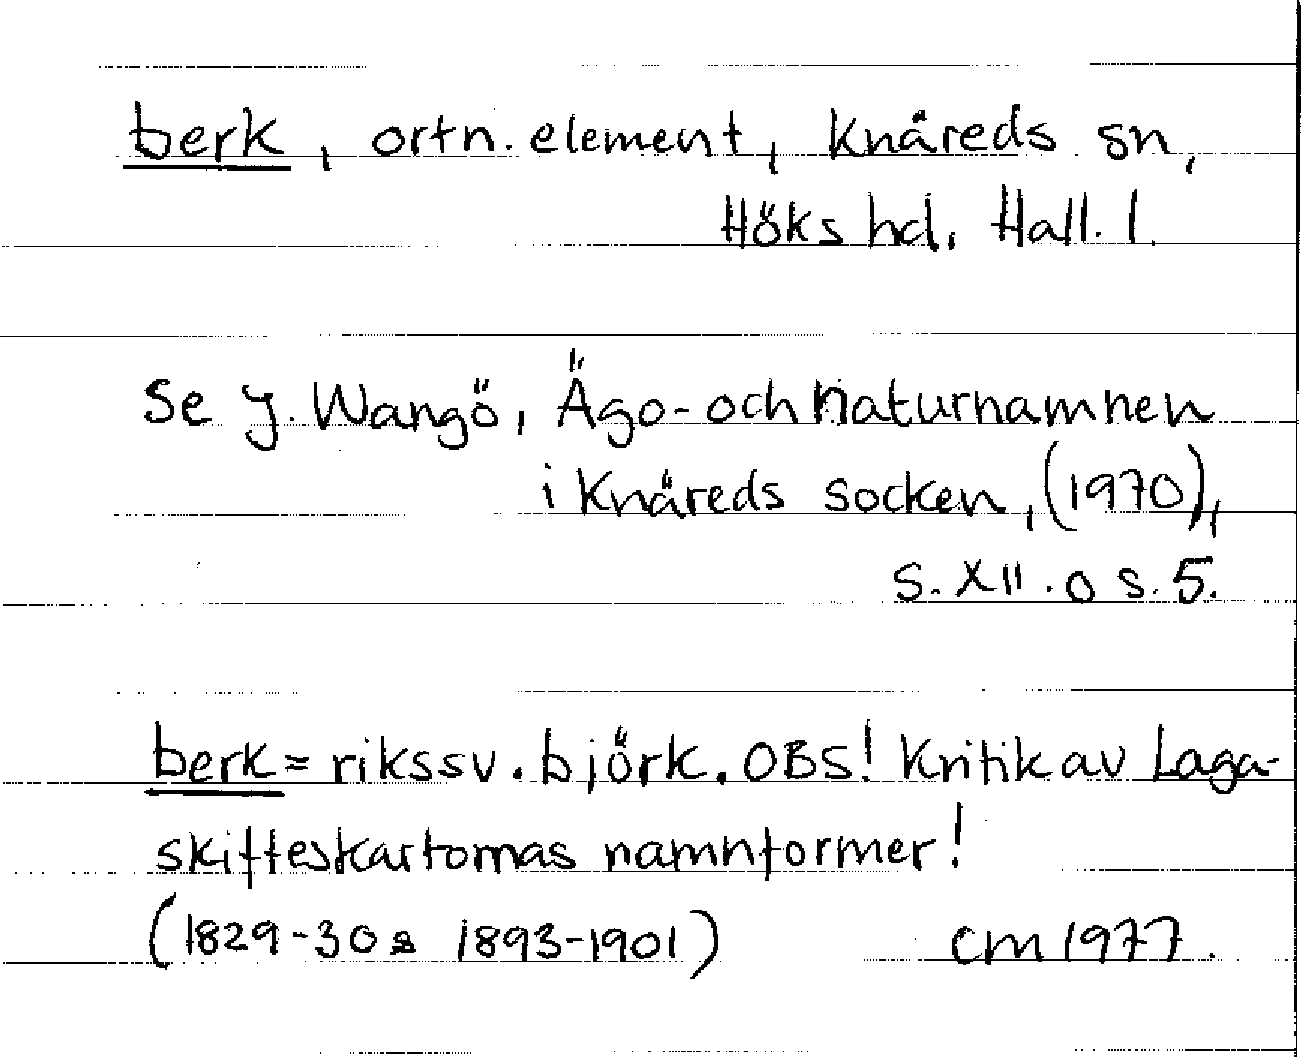 berk, ortn. element, Knäreds sn,
Höks hd, Hall. l.
Se J. Wangö, Ägo- och naturnamnen
i Knäreds socken, (1970),
s. XII. o s. 5.
berk = rikssv. björk. OBS! Kritik av Laga-
skifteskartornas namnformer!
(1829-30 & 1893-1901) CM 1977.